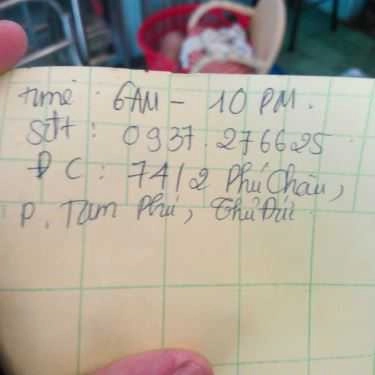 time : 6AM - 10 PM.
Sđt : 0937.276625
ĐC : 74/2 Phú Châu,
P. Tam Phú, Thủ Đức.